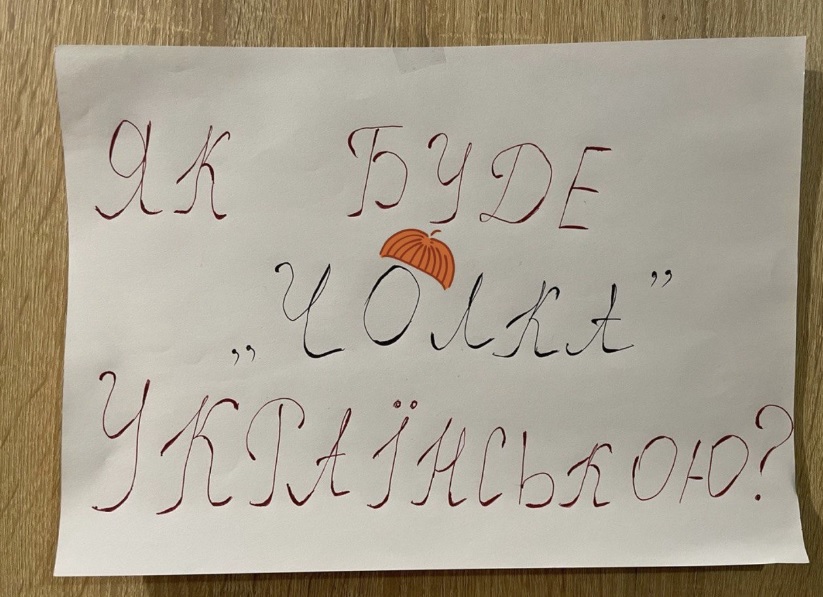 ЯК БУДЕ
„ЧОЛКА”
УКРАЇНСЬКОЮ?